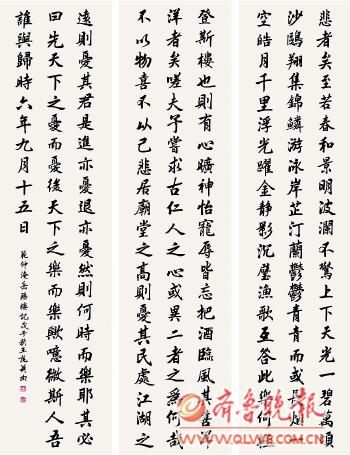 悲者矣至若春和景明波瀾不驚上下天光一碧萬頃
沙鷗翔集錦鱗游泳岸芷汀蘭鬱鬱青青而或長煙一
空皓月千里浮光躍金静影沉璧漁歌互答此樂何極
登斯樓也則有心曠神怡寵辱皆忘把酒臨風其喜洋
洋者矣嗟夫予嘗求古仁人之心或異二者之爲何哉
不以物喜不以己悲居廟堂之高則憂其民處江湖之
遠則憂其君是進亦憂退亦憂然則何時而樂耶其必
曰先天下之憂而憂後天下之樂而樂歟噫微斯人吾
誰與歸時六年九月十五日
範仲淹岳陽樓記戊子秋王
齊魯晚報
WWW.QLWB.COM.CN